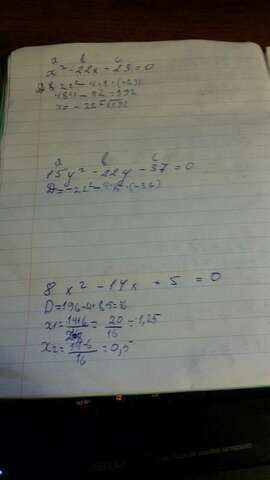 a b c
x² - 22x - 23 = 0
22² - 4 · 1 · (-23)
484 - 92 = 392
x = - 22 ± √392
a b c
15y² - 22y - 37 = 0
D = -22² - 4 · 15 · (-37)
8x² - 14x + 5 = 0
D = 196 - 4 · 8 · 5 = 36
x₁ = 14+6 = 20/16 = 1,25
x₂ = 14-6/16 = 0,5